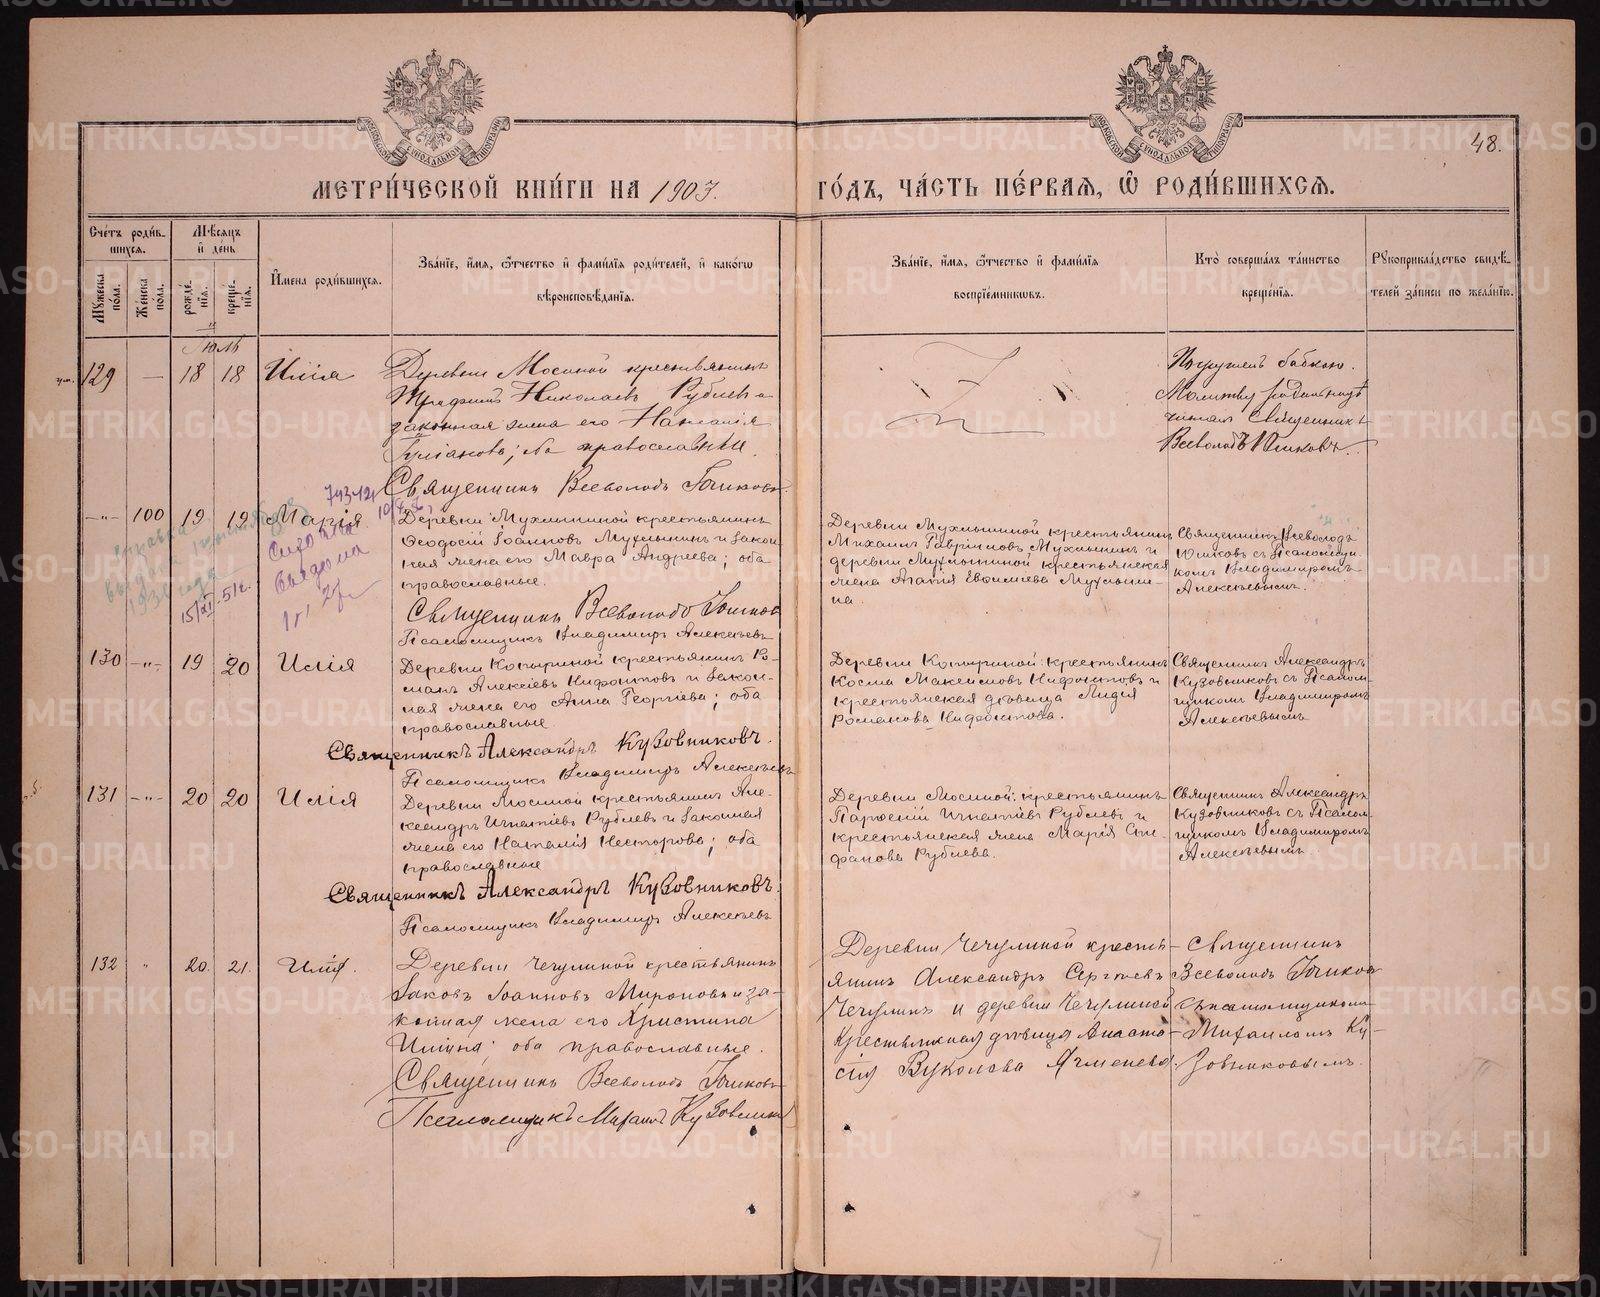 48.
МЕТРИ́ЧЕСКОЙ КНИ́ГИ НА 1903.
ГО́ДЪ, ЧА́СТЬ ПЕ́РВАѦ, Ѽ РОДИ́ВШИХСѦ.
Сче́тъ роди́в-
шихсѧ.
Мꙋжеска по́ла.
Же́нска по́ла.
Мѣ́сѧцъ
и҆ де́нь
рожде́-
нїѧ.
креще́-
нїѧ.
И҆мена роди́вшихсѧ.
Зва́нїе, и҆́мѧ, ѻ҆́тчество и҆ фами́лїѧ роди́телей, и҆ како́гѡ
вѣроисповѣ́данїѧ.
Зва́нїе, и҆́мѧ, ѻ҆́тчество и҆ фами́лїѧ
воспрїе́мникѡвъ.
Кто̀ соверша́лъ та́инство
креще́нїѧ.
Рꙋкоприкла́дство свидѣ́-
телей за́писи по жела́нїю.
Іюль
129 — 18 18 Илія
Деревни Мосиной крестьянинъ
Николаевъ Рублевъ и
законная жена его Наталія
оба православные.
Священникъ Всеволодъ
Погруженъ бабкою.
Молитву
читалъ Священникъ
Всеволодъ
-„- 100 19 19 Марія
743421
15/XI-51г.
Деревни Мухлыниной крестьянинъ
Ѳеодосій Іоанновъ Мухлынинъ и закон-
ная жена его Мавра Андреева; оба
православные.
Священникъ Всеволодъ
Псаломщикъ Владимиръ Алексѣевъ
Деревни Мухлыниной крестьянинъ
Михаилъ Гавріиловъ Мухлынинъ и
деревни Мухлыниной крестьянская
жена Агафія Евфиміева Мухлыни-
на.
Священникъ Всеволодъ
съ Псаломщи-
комъ Владимиромъ
Алексѣевымъ.
130 -„- 19 20 Илія
Деревни Копыриной крестьянинъ Ро-
манъ Алексѣевъ Нифонтовъ и закон-
ная жена его Анна Георгіева; оба
православные
Священникъ Александръ Кузовниковъ.
Псаломщикъ Владимиръ Алексѣевъ
Деревни Копыриной: крестьянинъ
Косма Максимовъ Нифонтовъ и
крестьянская дѣвица Лидія
Романова Нифонтова.
Священникъ Александръ
Кузовниковъ съ Псалом-
щикомъ Владимиромъ
Алексѣевымъ
131 -„- 20 20 Илія
Деревни Мосиной крестьянинъ Але-
ксандръ Игнатіевъ Рублевъ и законная
жена его Наталія Несторова; оба
православные
Священникъ Александръ Кузовниковъ.
Псаломщикъ Владимиръ Алексѣевъ
Деревни Мосиной: крестьянинъ
Парѳеній Игнатіевъ Рублевъ и
крестьянская жена Марія Сте-
фанова Рублева.
Священникъ Александръ
Кузовниковъ съ Псалом-
щикомъ Владимиромъ
Алексѣевымъ
132 „ 20. 21. Илія.
Деревни Чечулиной крестьянинъ
Іаковъ Іоанновъ Мироновъ и за-
конная жена его Христина
оба православные.
Священникъ Всеволодъ
Псаломщикъ Михаилъ Кузовниковъ
Деревни Чечулиной кресть-
янинъ Александръ Сергѣевъ
Чечулинъ и деревни Чечулиной
крестьянская дѣвица Анаста-
сія Вуколова Ячменева.
Священникъ
Всеволодъ
съ псаломщикомъ
Михаиломъ Ку-
зовниковымъ.
METRIKI.GASO-URAL.RU